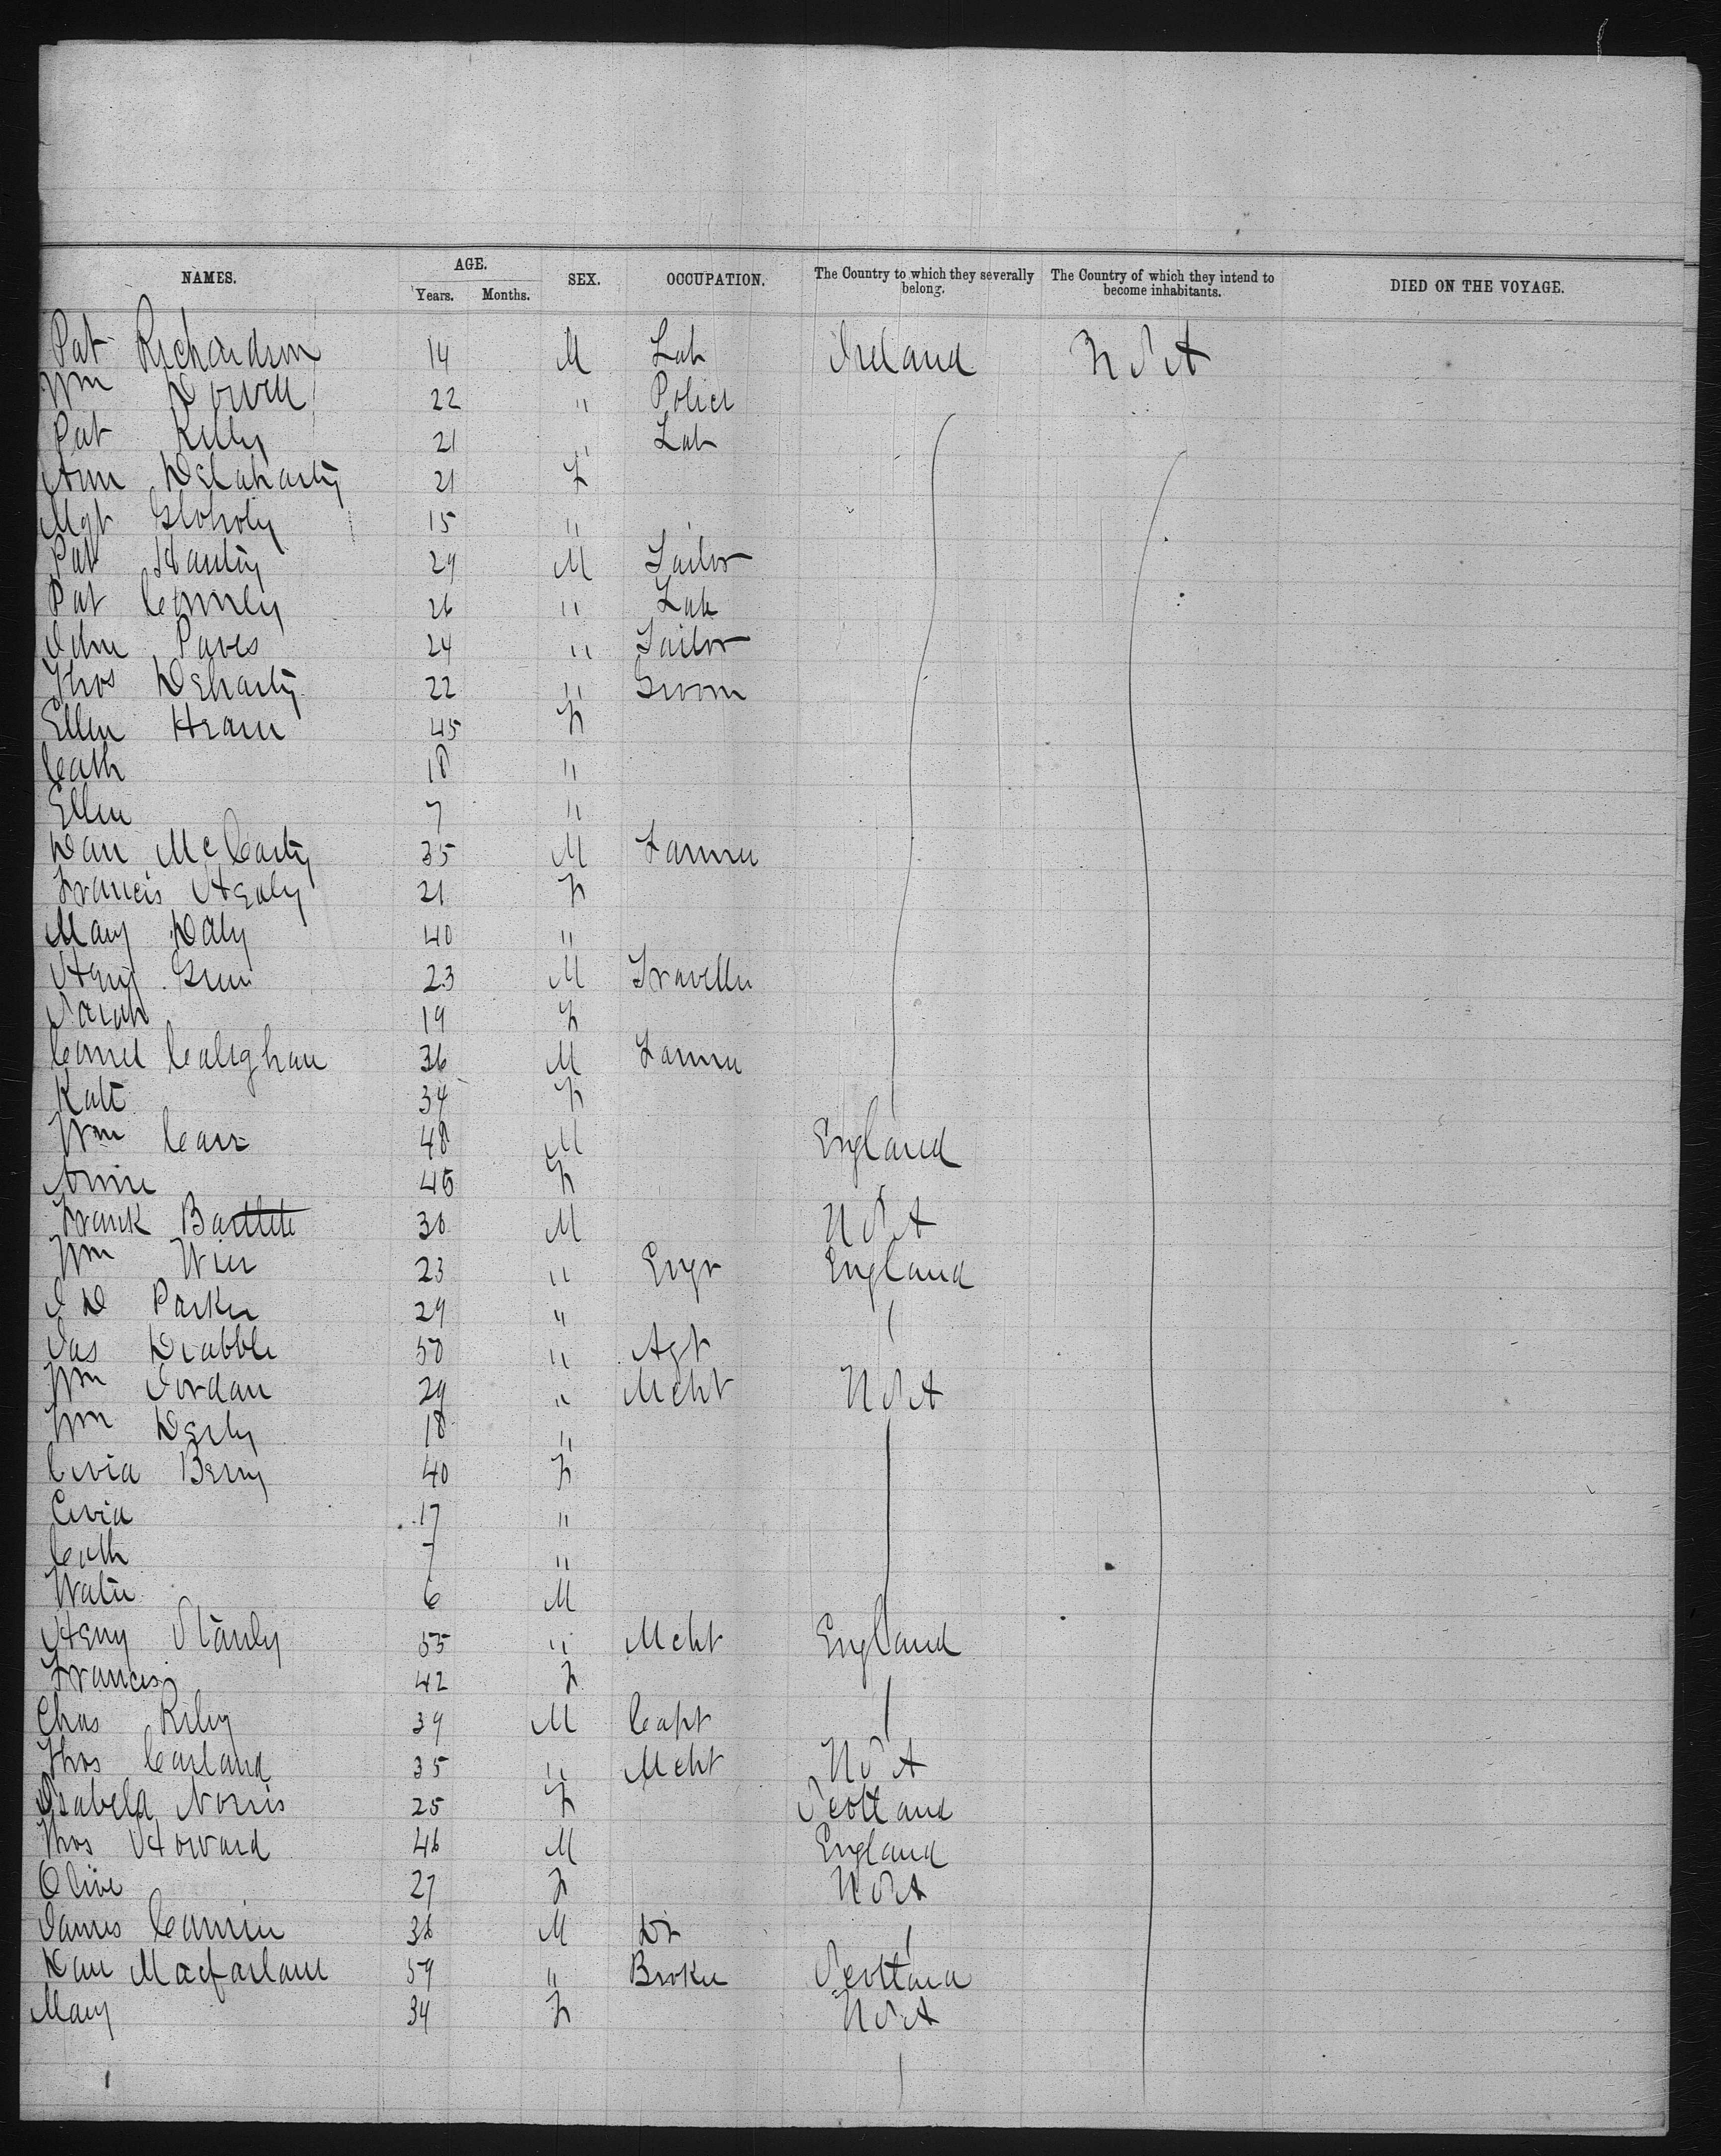 NAMES. AGE. SEX. OCCUPATION. The Country to which they severally belong. The Country of which they intend to become inhabitants. DIED ON THE VOYAGE.
Years. Months.
Pat Richardson 14 M Lab Ireland USA
Wm 22 " Police
Pat Kelly 21 " Lab
Ann Delaharty 21 F
Mgt 15 "
Pat Hanley 29 M Tailor
Pat Connely 26 " Lab
John 24 " Tailor
Thos Deharty 22 " Groom
Ellen Hearn 45 F
Cath 18 "
Ellen 7 "
Dan McCarty 35 M Farmer
Francis Healy 21 F
Mary Daly 40 "
Henry Green 23 M Traveller
Sarah 19 F
Cornel Calighan 36 M Farmer
Kate 34 F
Wm Carr 48 M England
Annie 45 F
Frank Bartlett 30 M USA
Wm Wier 23 " Engr England
J D Parker 29 "
Jas Drabble 50 " Agt
Wm Jordan 29 " Mcht USA
Wm Derby 18 "
Civia Berry 40 F
Civia 17 "
Cath 7 "
Walter 6 M
Henry Stanly 55 " Mcht England
Francis 42 F
Chas Riley 39 M Capt
Thos Garland 35 " Mcht USA
Isabela Norris 25 F Scotland
Thos Howard 46 M England
Olive 27 F USA
James 36 M Dr
Dan Macfarlane 59 " Broker Scotland
Mary 34 F USA